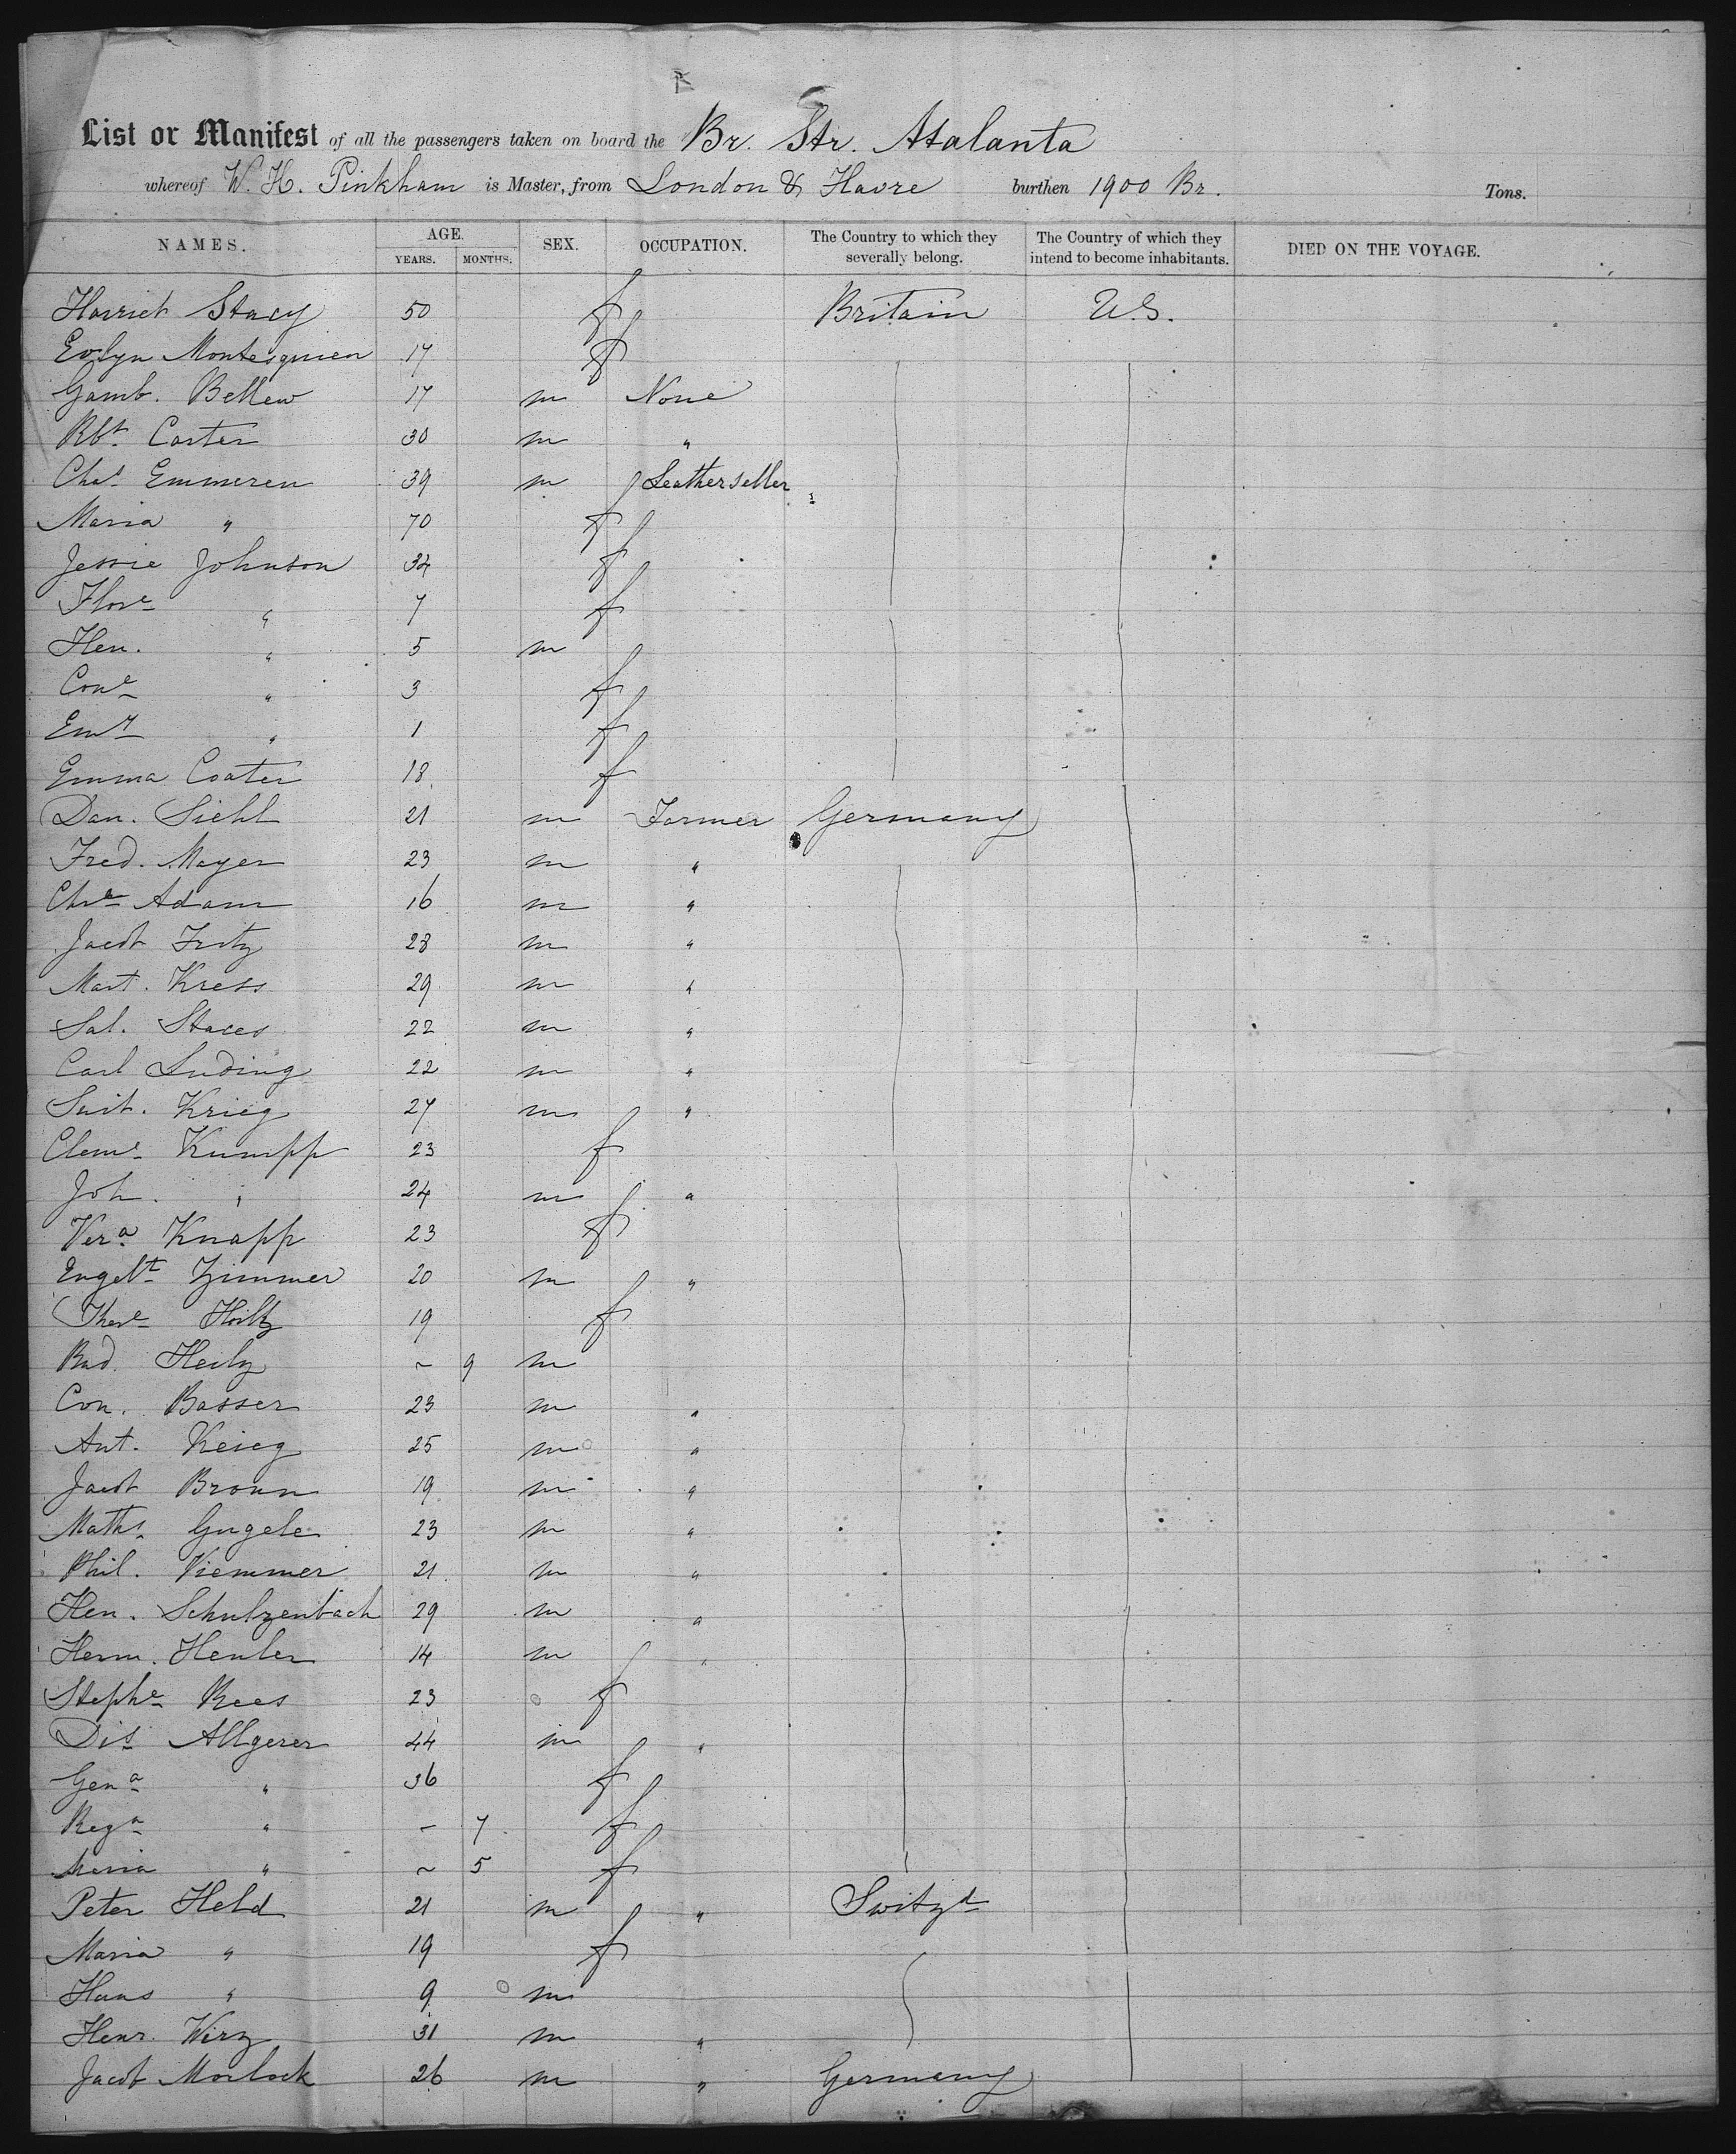 List or Manifest of all the passengers taken on board the Br. Str. Atalanta
whereof W. H. Pinkham is Master, from London & Havre burthen 1900 Br. Tons.
NAMES. AGE. SEX. OCCUPATION. The Country to which they severally belong. The Country of which they intend to become inhabitants. DIED ON THE VOYAGE.
YEARS. MONTHS.
Harriet Stacy 50 f Britain U.S.
Evlyn Montesquieu 17 f
Gamb. Bellew 17 m None
Rbt. Carter 30 m "
Chas. Emmeren 39 m Leatherseller
Maria " 70 f
Jessie Johnson 34 f
Flore " 7 f
Hen. " 5 m
Cone " 3 f
Emy " 1 f
Emma Coater 18 f
Dan. Siehl 21 m Farmer Germany
Fred. Mayer 23 m "
Chra Adam 16 m "
Jacob Fritz 28 m "
Mart. Kress 29 m "
Sal. Staces 22 m "
Carl Luding 22 m "
Suit. Krieg 27 m "
Cleme Kumpp 23 f
Joh. " 24 m "
Vera Knapp 23 f
Engelt Zimmer 20 m "
There 19 f
Rud. Heilz ~ 9 m
Con. Basser 23 m "
Ant. Krieg 25 m "
Jacob Brown 19 m "
Maths. Gugele 23 m "
Phil. Kiemmer 21 m "
Hen. Schulzenbach 29 m "
Herm. Henler 14 m "
Stephe Rees 23 f
Dis Allgerer 44 m "
Gena " 36 f
Rega " - 7 f
Maria " ~ 5 f
Peter Held 21 m " Switzd
Maria " 19 f
Hans " 9 m
Henr. Wirz 31 m "
Jacob Morlock 26 m " Germany